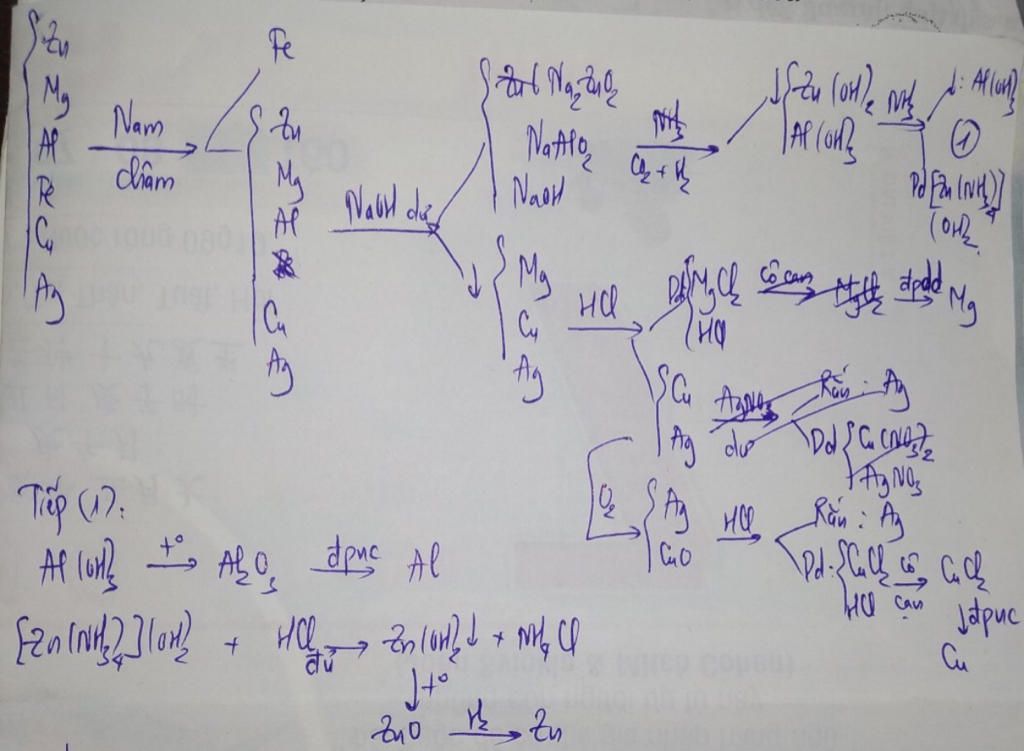 { Zn
Mg
Al
Fe
Cu
Ag
Nam châm →
Fe
{ Zn
Mg
Al
Cu
Ag
NaOH dư →
{ Na₂ZnO₂
NaAlO₂
NaOH
NH₃
CO₂ + H₂ →
↓ { Zn(OH)₂
Al(OH)₃
NH₃ →
↓: Al(OH)₃
①
Dd [Zn(NH₃)₄]
(OH)₂
↓ { Mg
Cu
Ag
HCl →
Dd { MgCl₂
HCl
cô cạn →
MgCl₂
đpdd →
Mg
{ Cu
Ag
AgNO₃ dư →
Rắn: Ag
Dd { Cu(NO₃)₂
AgNO₃
O₂ →
{ Ag
CuO
HCl →
Rắn: Ag
Dd: { CuCl₂
HCl
cô cạn →
CuCl₂
↓ đpnc
Cu
Tiếp (1):
Al(OH)₃ t° → Al₂O₃ đpnc → Al
[Zn(NH₃)₄](OH)₂ + HCl đủ → Zn(OH)₂↓ + NH₄Cl
↓ t°
ZnO H₂ → Zn